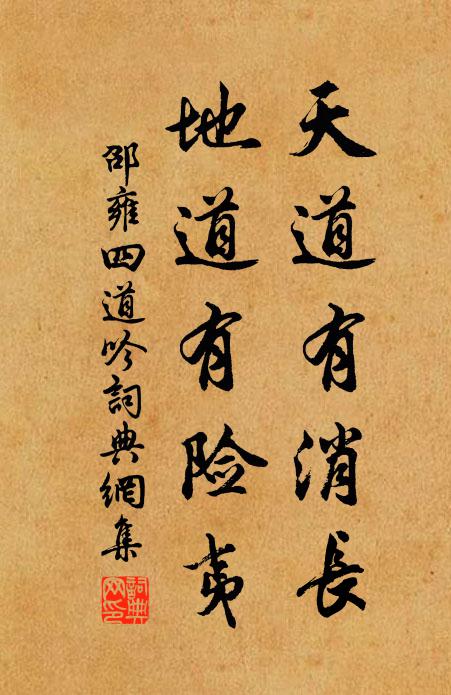 天道有消長
地道有险夷
邵雍四道吟詞典網集
詞典網印